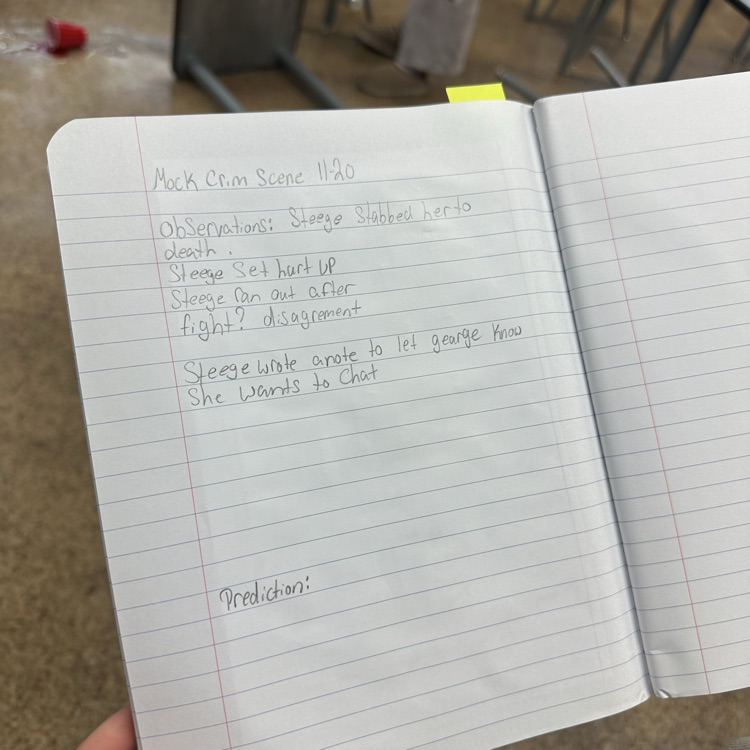 Mock Crim Scene 11-20
Observations: Steege Stabbed her to
death.
Steege Set hurt up
Steege ran out after
fight? disagrement
Steege wrote anote to let gearge know
She wants to Chat
Prediction: